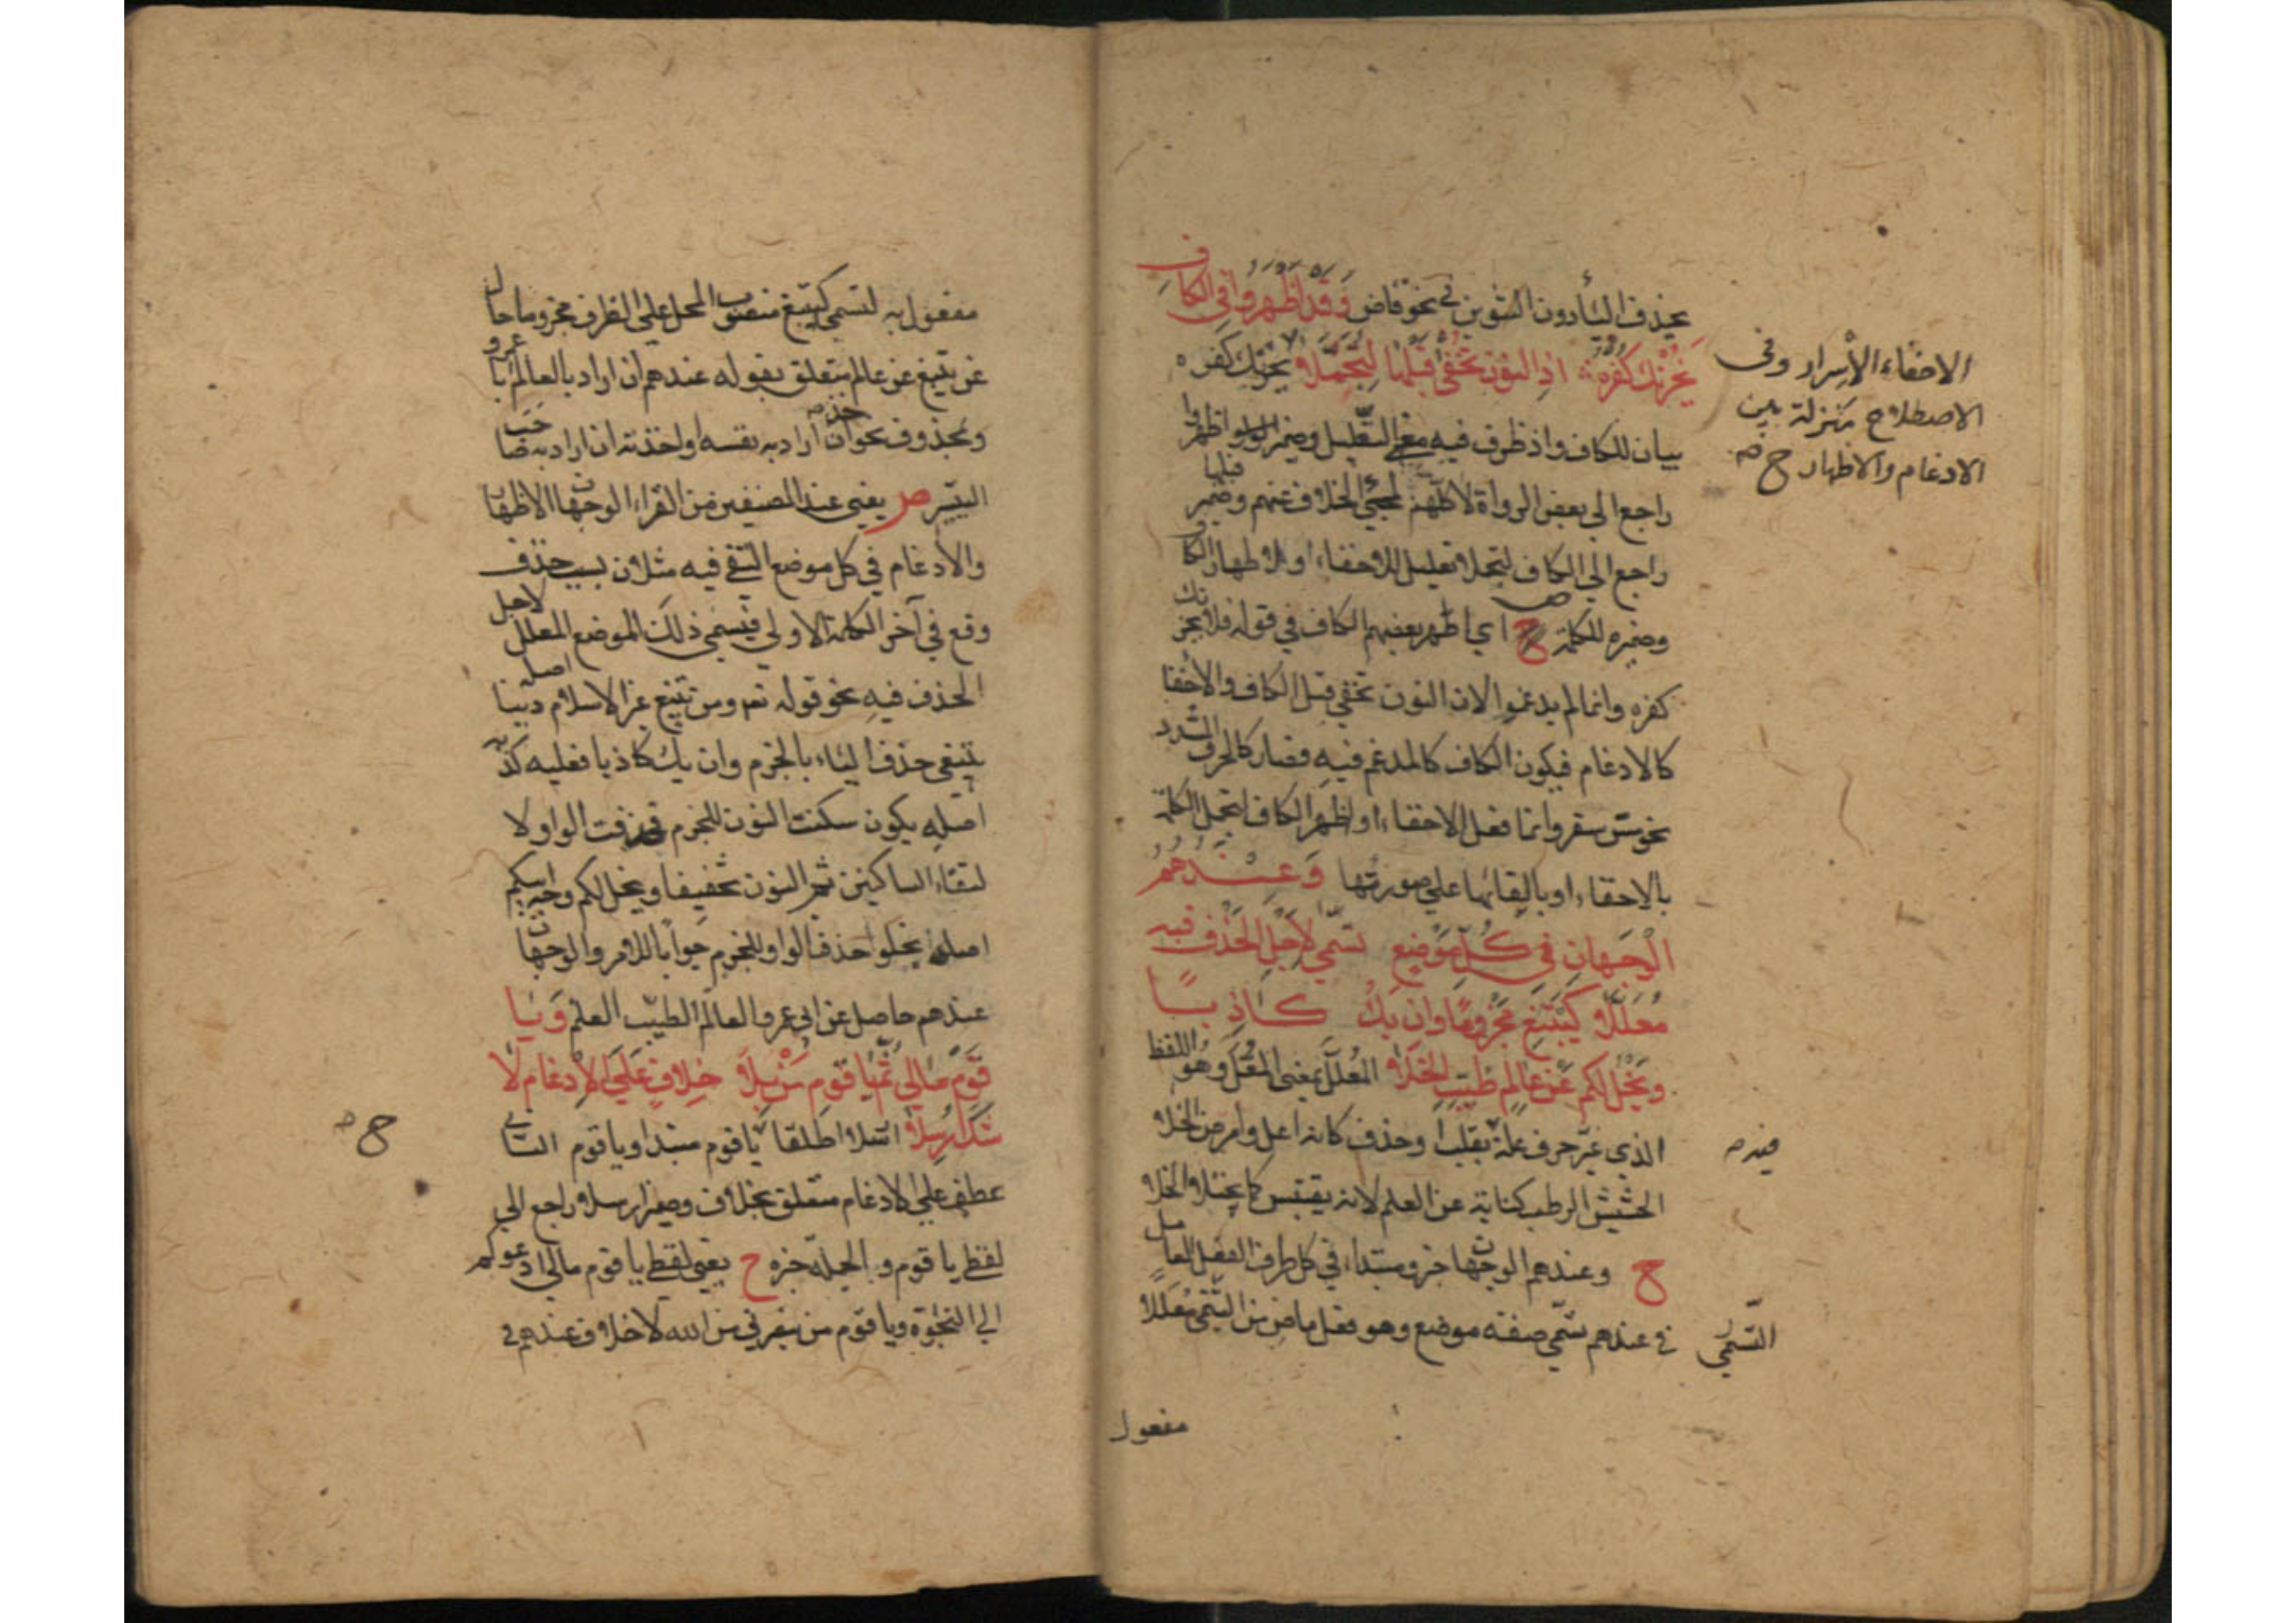 بحذف الياء دون التنوين في نحو قاض وَقَدْ أَظْهَرُوا فِي الْكَافِ
يَحْزُنْكَ كُفْرُهُ اذِ النُّون تُخْفَى قَبْلَهَا لِتُجَمَّلَا يحزنك كفره
بيان للكاف واذ ظرف فيه معنى التعليل وضمير اظهروا
راجع الى بعض الرواة لا كلهم لمجيء الخلاف عنهم وضمير قبلها
راجع الى الكاف لتجملا تعليل للاخفاء او لاظهار الكاف
وضميره للكلمة ح اي اظهر بعضهم الكاف في قوله فلا يحزنك
كفره وانما لم يدغموا لان النون تخفى قبل الكاف والاخفا
كالادغام فيكون الكاف كالمدغم فيه فصار كالحرف المشدد
نحو مس سقر وانما فعل الاخفاء او اظهر الكاف لتجمل الكلمة
بالاخفاء او بابقائها على صورتها وَعِنْدَهُمُ
الْوَجْهَانِ فِي كُلِّ مَوْضِعٍ تسَمَّى لِأَجْلِ الْحَذْفِ فيهِ
مُعَلَّلَا كَيَبْتَغِ مَجْزُومًا وَإِنْ يَكُ كَاذِبًا
وَيَخْلُ لَكُمْ عَنْ عَالِمٍ طَيِّبِ الْخَلَا المُعلّل بمعنى المعلّ وهُو اللفظ
الذي غيّر حرف علة بقلب او حذف كانه اعل وامرض الخلا
الحشيش الرطب كناية عن العلم لانه يقتبس كما يختلا الخلا
ح وعندهم الوجهان خبر ومبتداء في كل ظرف الفعل العامل
في عندهم تسمّى صفة موضع وهو فعل ماض من التسمّي مُعلّلًا
مفعول
الاخفاء الاسرار وفي
الاصطلاح منزلة بين
الادغام والاظهار ح صه
فيه صه
التسمّي
مفعول به لتسمى كيبتغ منصوب المحل على الظرف مجزوما حال
عن يبتغ عن عالم يتعلق بقوله عندهم ان اراد بالعالم ابا عمرو
وبمحذوف نحو خذه ان اراد به نفسه او اخذته ان اراد به صاحب
التيسير ص يعني عند المصنفين من القراء الوجهان الاظهار
والادغام في كل موضع التقى فيه مثلان بسبب حذف
وقع في آخر الكلمة الاولى فيسمى ذلك الموضع المعلل لاجل
الحذف فيه نحو قوله تع ومن يبتغ غير الاسلام دينا اصله
يبتغي حذف الياء بالجزم وان يك كاذبا فعليه كذبه
اصله يكون سكنت النون للجزم فحذفت الواو لا
لتقاء الساكنين ثم النون تخفيفا ويخل لكم وجه ابيكم
اصله يخلو احذف الواو للجزم جوابا للامر والوجهان
عندهم حاصل عن ابي عمرو العالم الطيب العلم وَيَا
قَوْمِ مَالِي ثُمَّ يَا قَوْمِ مَنْ بِلَا خِلَافٍ عَلَى الْإِدْغَامِ لَا
شَكَّ أُرْسِلَا ارسلا اطلقا يا قوم مبتدا ويا قوم الثاني
عطف على الادغام متعلق بخلاف وضمير ارسلا راجع الى
لفظ يا قوم و الجملة خبره ح يعني لفظ يا قوم مالي ادعوكم
الى النجوة ويا قوم من ينصرني من الله لا خلاف عندهم في
ح صه